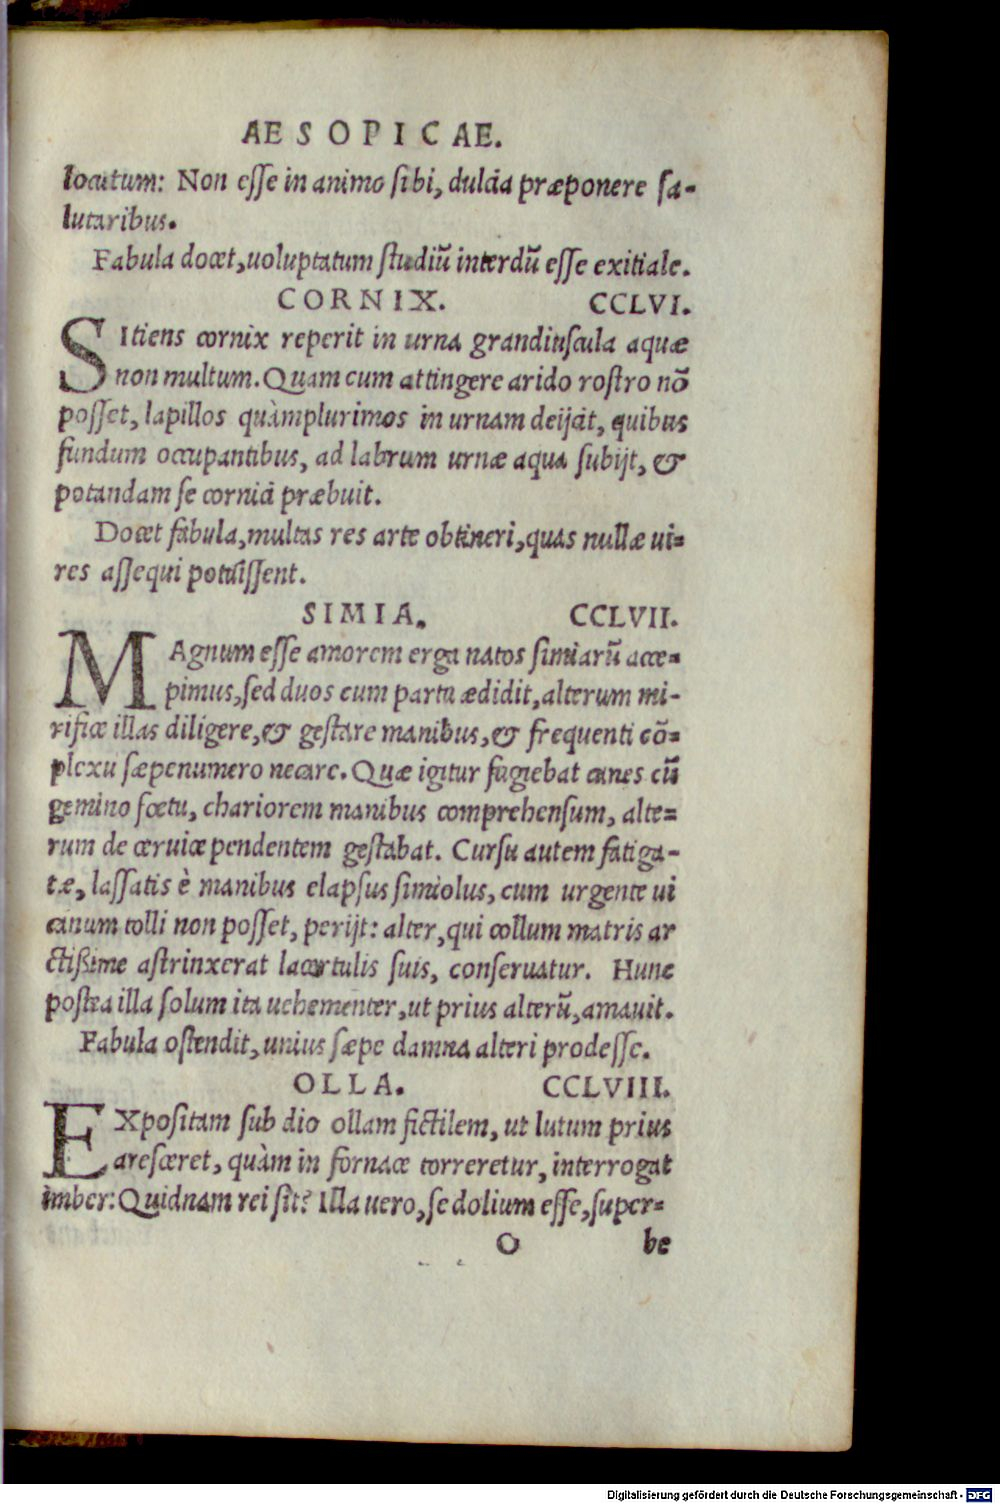 AESOPICAE.
locutum: Non esse in animo sibi, dulcia præponere sa-
lutaribus.
Fabula docet, uoluptatum studiũ interdũ esse exitiale.
CORNIX. CCLVI.
SItiens cornix reperit in urna grandiuscula aquæ
non multum. Quam cum attingere arido rostro nõ
posset, lapillos quàmplurimos in urnam deijcit, quibus
fundum occupantibus, ad labrum urnæ aqua subijt, &
potandam se cornici præbuit.
Docet fabula, multas res arte obtineri, quas nullæ ui-
res assequi potuissent.
SIMIA. CCLVII.
MAgnum esse amorem erga natos simiarũ acce-
pimus, sed duos cum partu ædidit, alterum mi-
rifice illas diligere, & gestare manibus, & frequenti cõ-
plexu sæpenumero necare. Quæ igitur fugiebat canes cũ
gemino fœtu, chariorem manibus comprehensum, alte-
rum de ceruice pendentem gestabat. Cursu autem fatiga-
tæ, lassatis è manibus elapsus simiolus, cum urgente ui
canum tolli non posset, perijt: alter, qui collum matris ar
ctißime astrinxerat lacertulis suis, conseruatur. Hunc
postea illa solum ita uehementer, ut prius alterũ, amauit.
Fabula ostendit, unius sæpe damna alteri prodesse.
OLLA. CCLVIII.
EXpositam sub dio ollam fictilem, ut lutum prius
aresceret, quàm in fornace torreretur, interrogat
imber: Quidnam rei sit? Illa uero, se dolium esse, super-
O be
Digitalisierung gefördert durch die Deutsche Forschungsgemeinschaft - DFG